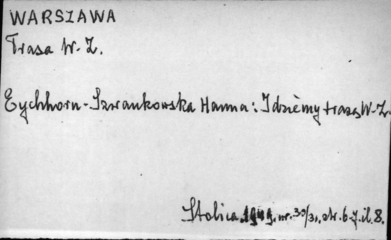 WARSZAWA
Trasa W-Z.
Eychhorn-Szwankowska Hanna: Idziemy trasą W-Z.
Stolica 1949, nr. 30/31, str. 6-7, il. 8.